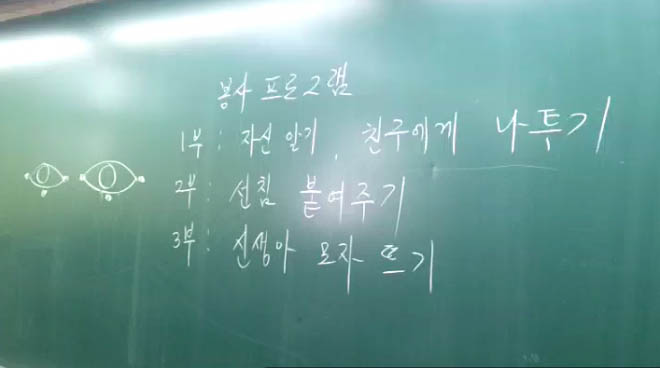 봉사 프로그램
1부 : 자신 알기, 친구에게 나투기
2부 : 선침 붙여주기
3부 : 신생아 모자 뜨기